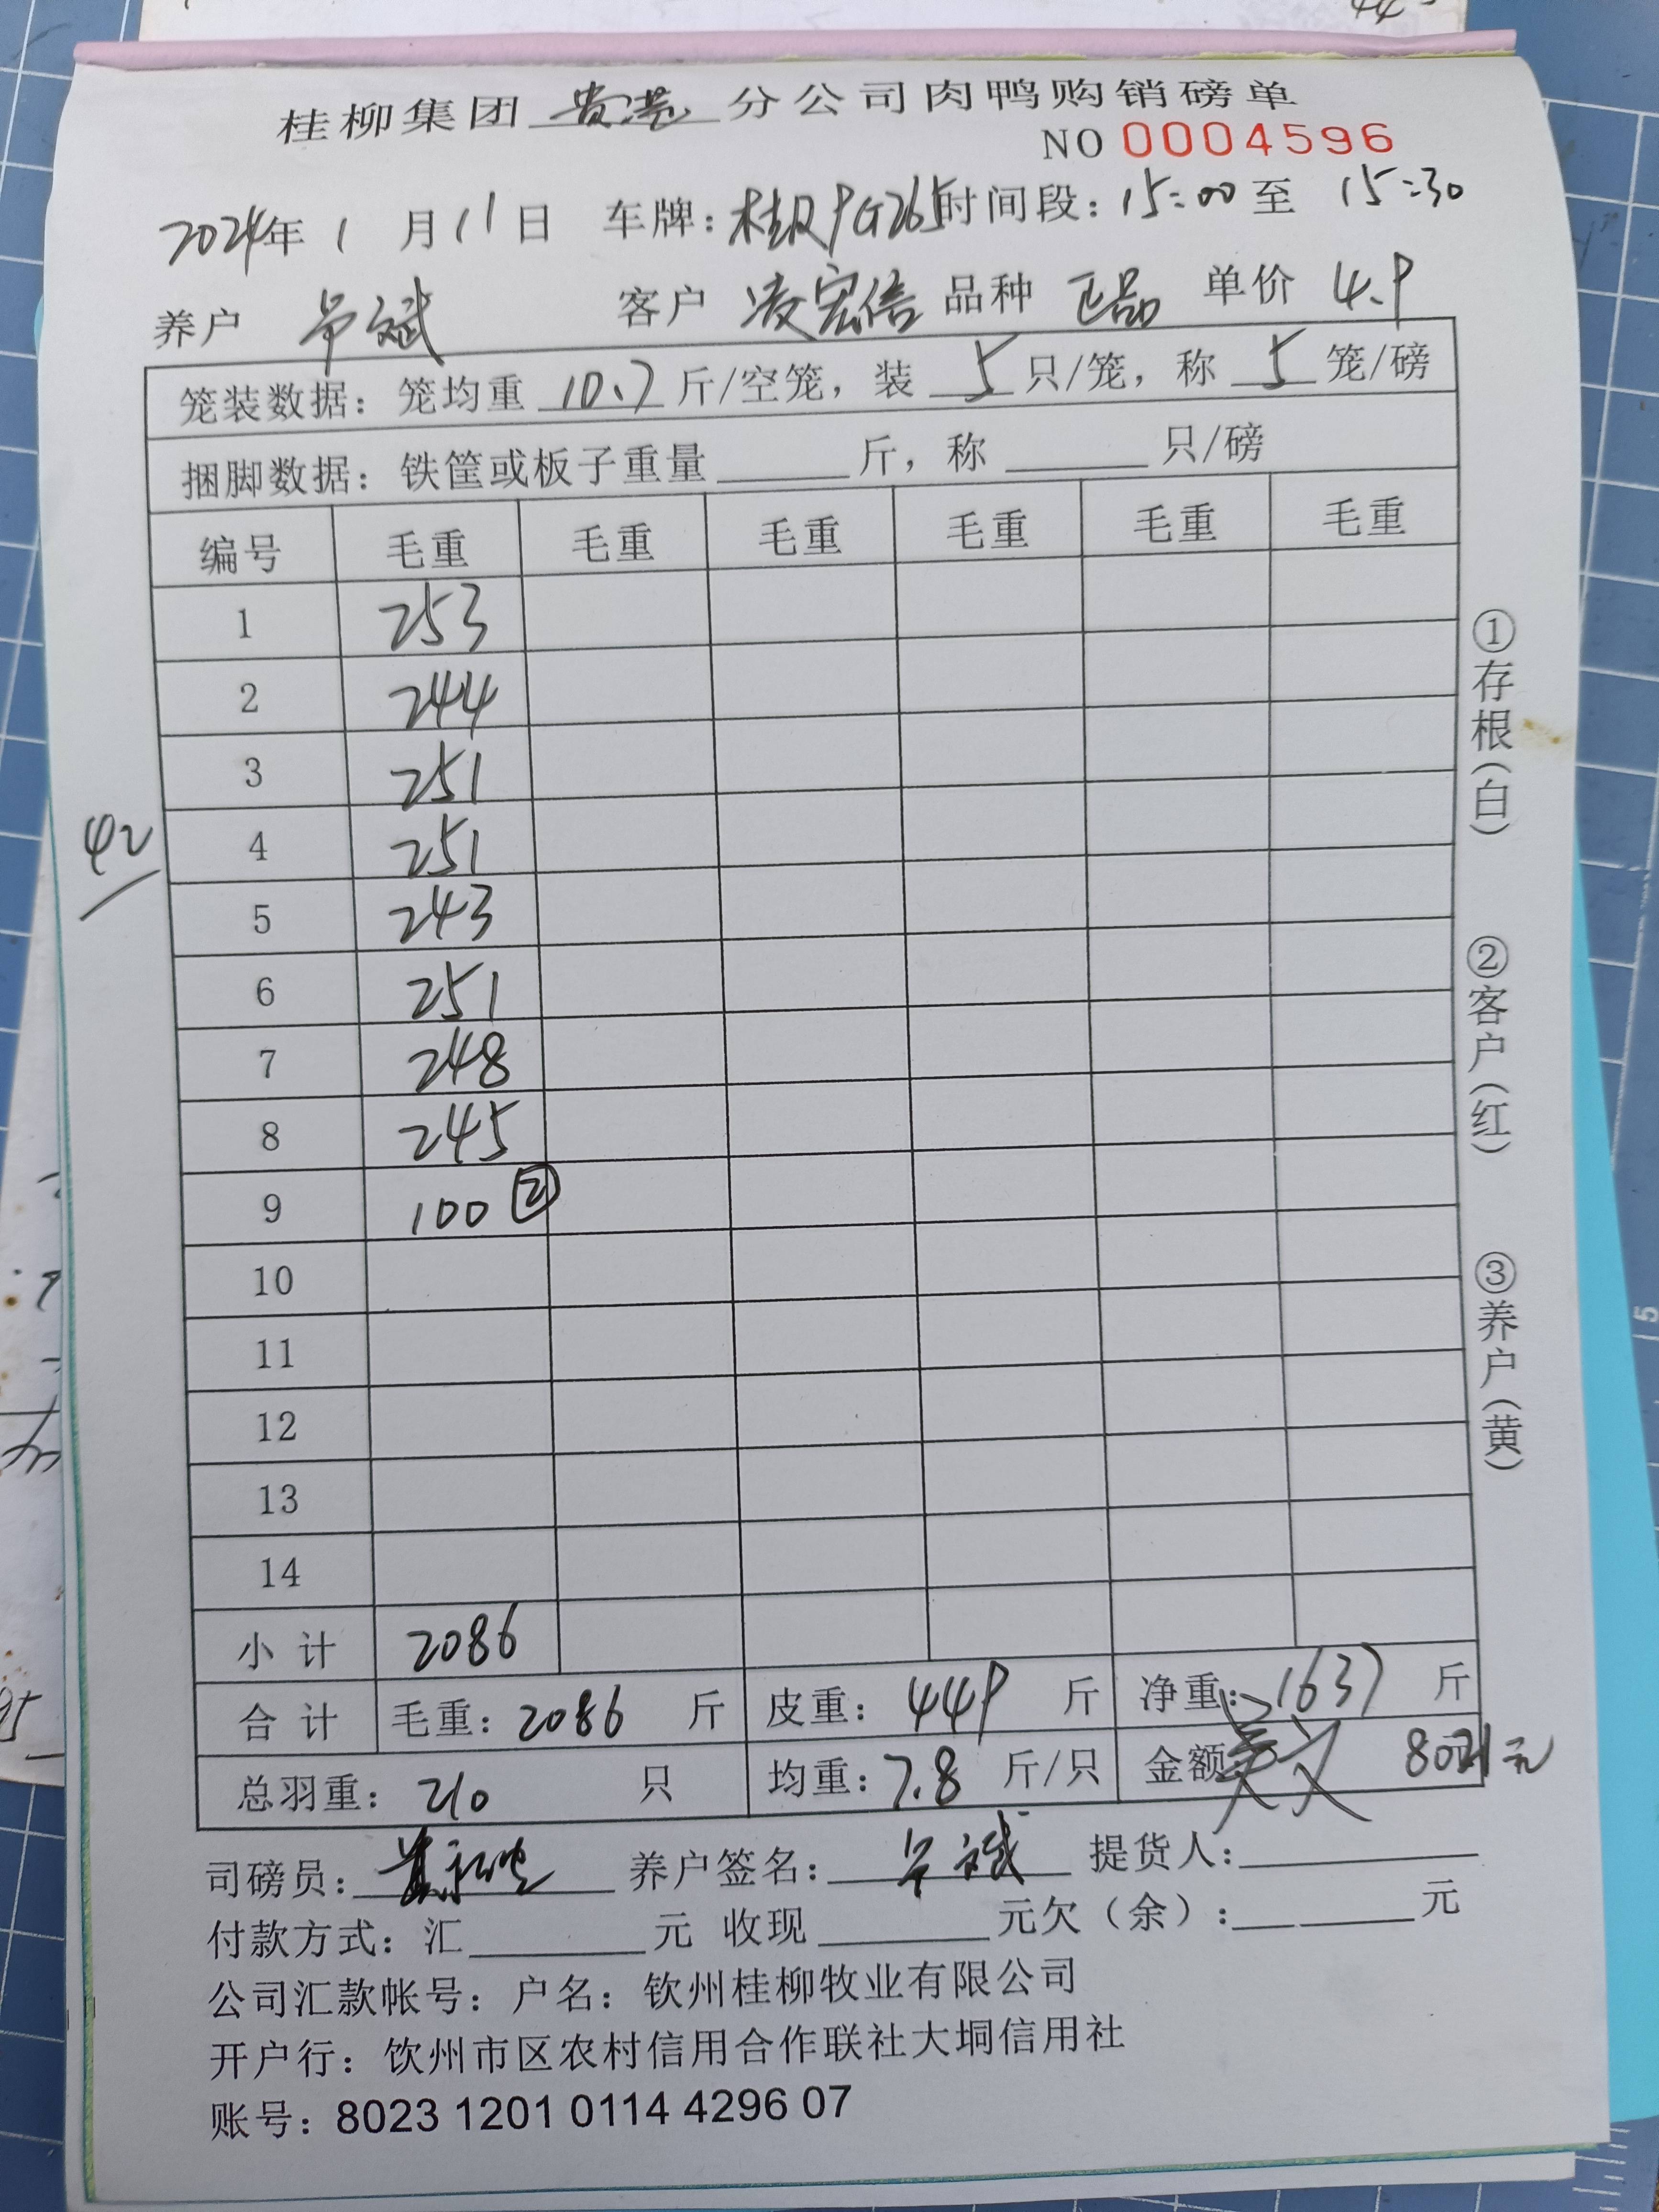 桂柳集团 贵港 分公司肉鸭购销磅单
NO 0004596
2024年 1 月 11 日 车牌：桂RPG265 时间段：15:00 至 15:30
养户 斌 客户 凌宏信 品种 正品 单价 4.9
笼装数据：笼均重 10.7 斤/空笼，装 5 只/笼，称 5 笼/磅
捆脚数据：铁筐或板子重量 斤，称 只/磅
编号 毛重 毛重 毛重 毛重 毛重 毛重
1 253
2 244
3 251
4 251
42
5 243
6 251
7 248
8 245
9 100 ②
10
11
12
13
14
小计 2086
合计 毛重：2086 斤 皮重：449 斤 净重：1637 斤
总羽重：210 只 均重：7.8 斤/只 金额 8021元
司磅员： 养户签名： 斌 提货人：
付款方式：汇 元 收现 元欠（余）： 元
公司汇款帐号：户名：钦州桂柳牧业有限公司
开户行：钦州市区农村信用合作联社大垌信用社
账号：8023 1201 0114 4296 07
①存根（白）
②客户（红）
③养户（黄）